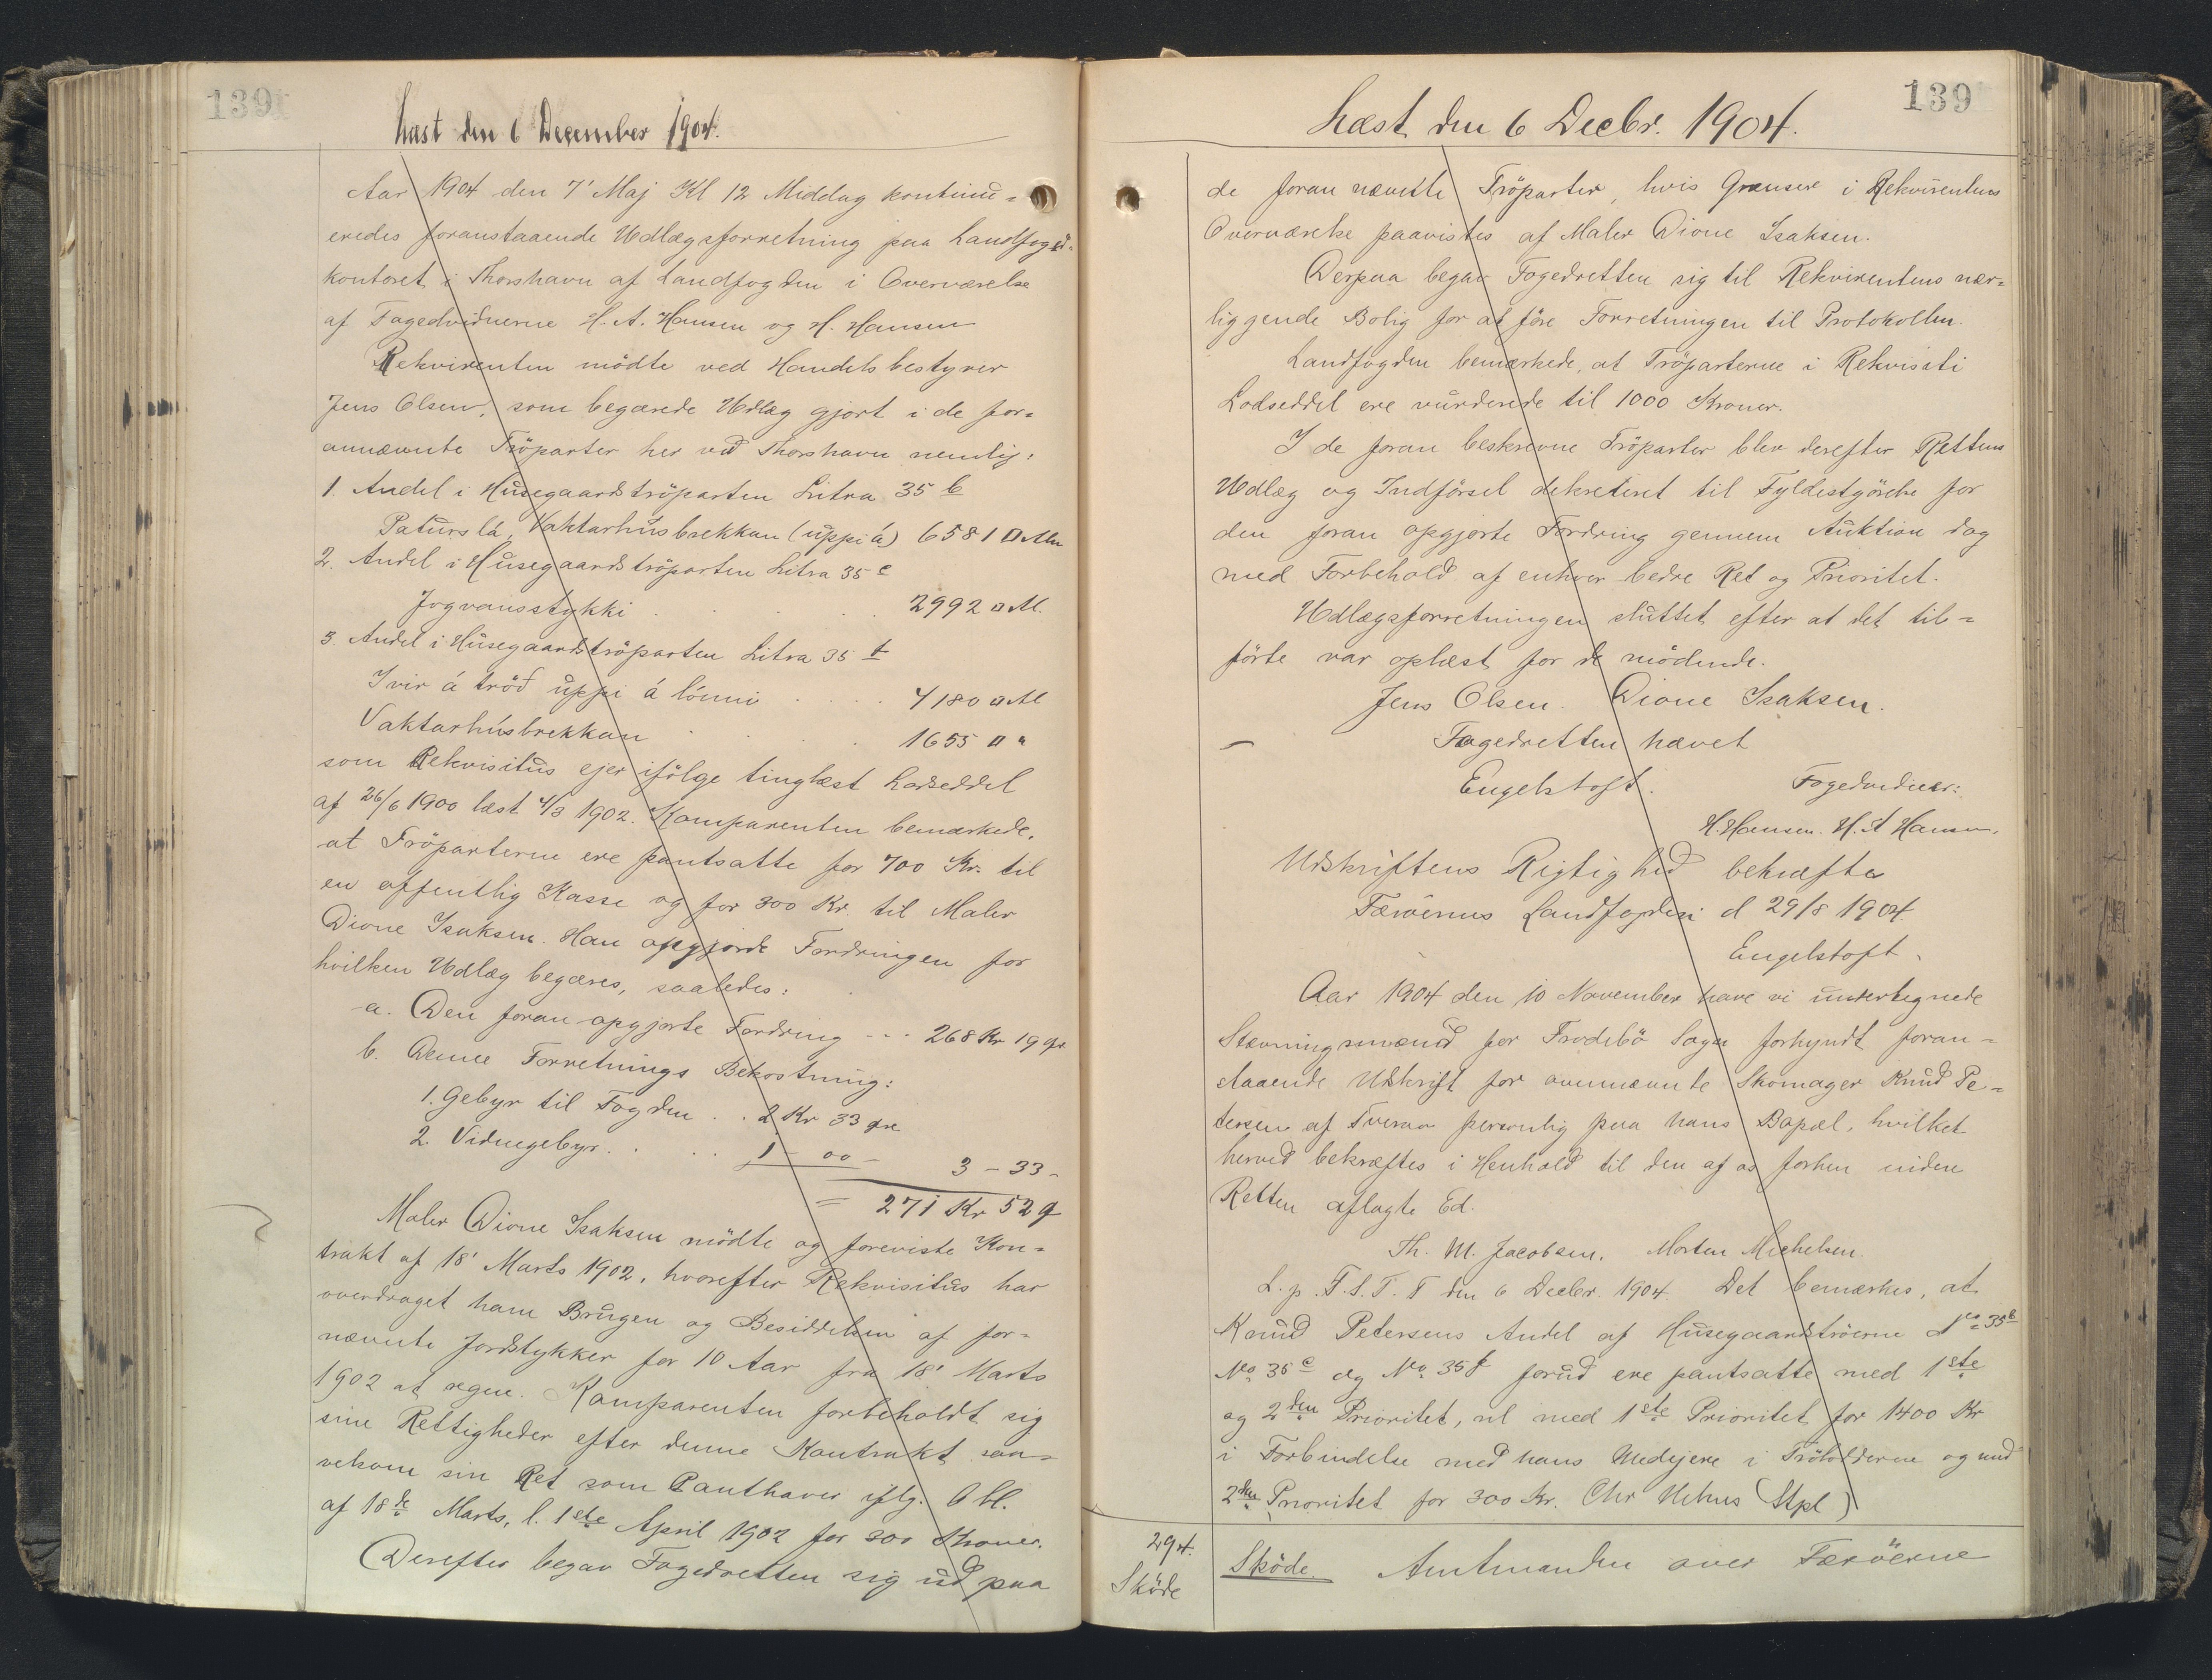 139
Læst den 6 December 1904.
Aar 1904 den 7' Maj Kl 12 Middag kontinu-
eredes foranstaaende Udlægsforretning paa Landfoged-
kontoret i Thorshavn af Landfogden i Overværelse
af Fogedvidnerne H. A. Hansen og H. Hansen
Rekvirenten mödte ved Handelsbestyrer
Jens Olsen, som begærede Udlæg gjort i de for-
annævnte Tröparter her ved Thorshavn nemlig:
1. Andel i Húsegaardströparten Litra 35 b
Paturslá, Vaktarhúsbrekkan (uppi á) 6581 □ Aln
2. Andel i Húsegaardströparten Litra 35 c
Jogvansstykki . . . . 2992 □ Al.
3. Andel i Húsegaardströparten Litra 35 f
Ivir á tröð uppi á lónni . . . . 4180 □ Al
Vaktarhúsbrekkan . . . 1655 □ "
som Rekvisitus ejer ifölge tinglæst Lodseddel
af 26/6 1900 læst 4/3 1902. Komparenten bemærkede,
at Tröparterne ere pantsatte for 700 Kr. til
en offentlig Kasse og for 300 Kr. til Maler
Dione Isaksen. Han opgjorde Fordringen for
hvilken Udlæg begæres, saaledes:
a. Den foran opgjorte Fordring --- 268 Kr 19 ør
b. Denne Forretnings Bekostning:
1. Gebyr til Fogden . . 2 Kr 33 øre
2. Vidnegebyr . . . . 1 - 00 - 3 - 33 -
= 271 Kr 52 ø
Maler Dione Isaksen mödte og foreviste Kon-
trakt af 18' Marts 1902, hvorefter Rekvisitus har
overdraget ham Brugen og Besiddelsen af for-
nævnte Jordstykker for 10 Aar fra 18' Marts
1902 at regne. Komparenten forbeholdt sig
sine Rettigheder efter denne Kontrakt saa-
velsom sin Ret som Panthaver iflg. Obl.
af 18de Marts, l. 1ste April 1902 for 300 Kroner.
Derefter begav Fogedretten sig ud paa
139
Læst den 6 Decbr. 1904.
de foran nævnte Tröparter, hvis Grænser i Rekvirentens
Overværelse paavistes af Maler Dione Isaksen.
Derpaa begav Fogedretten sig til Rekvirentens nær-
liggende Bolig for at före Forretningen til Protokollen.
Landfogden bemærkede, at Tröparterne i Rekvisiti
Lodseddel ere vurderede til 1000 Kroner.
I de foran beskrevne Tröparter blev derefter Rettens
Udlæg og Indförsel dekreteret til Fyldestgörelse for
den foran opgjorte Fordring gennem Auktion dog
med Forbehold af enhver bedre Ret og Prioritet.
Udlægsforretningen sluttet efter at det til-
förte var oplæst for de mödende.
Jens Olsen. Dione Isaksen.
Fogedretten hævet
Engelstoft. Fogedvidner:
H. Hansen. H. A Hansen.
Udskriftens Rigtighed bekræftes
Færöernes Landfogderi d 29/8 1904
Engelstoft.
Aar 1904 den 10 November have vi undertegnede
Stævningsmænd for Frodebö Sogn forkyndt foran-
staaende Udskrift for ovennævnte Skomager Knud Pe-
tersen af Tveraa personlig paa hans Bopæl, hvilket
herved bekræftes i Henhold til den af os forhen inden
Retten aflagte Ed.
Th. M. Jacobsen. Morten Michelsen.
L. p. F. S. T. T den 6 Decbr. 1904. Det bemærkes, at
Knud Petersens Andel af Húsegaardströerne No. 35b
No. 35c og No. 35f forud ere pantsatte med 1ste
og 2den Prioritet, nl med 1ste Prioritet for 1400 Kr
i Forbindelse med hans Medejere i Trölodderne og med
2den Prioritet for 300 Kr. (Stpl)
294.
Sköde
Sköde. Amtmanden over Færöerne